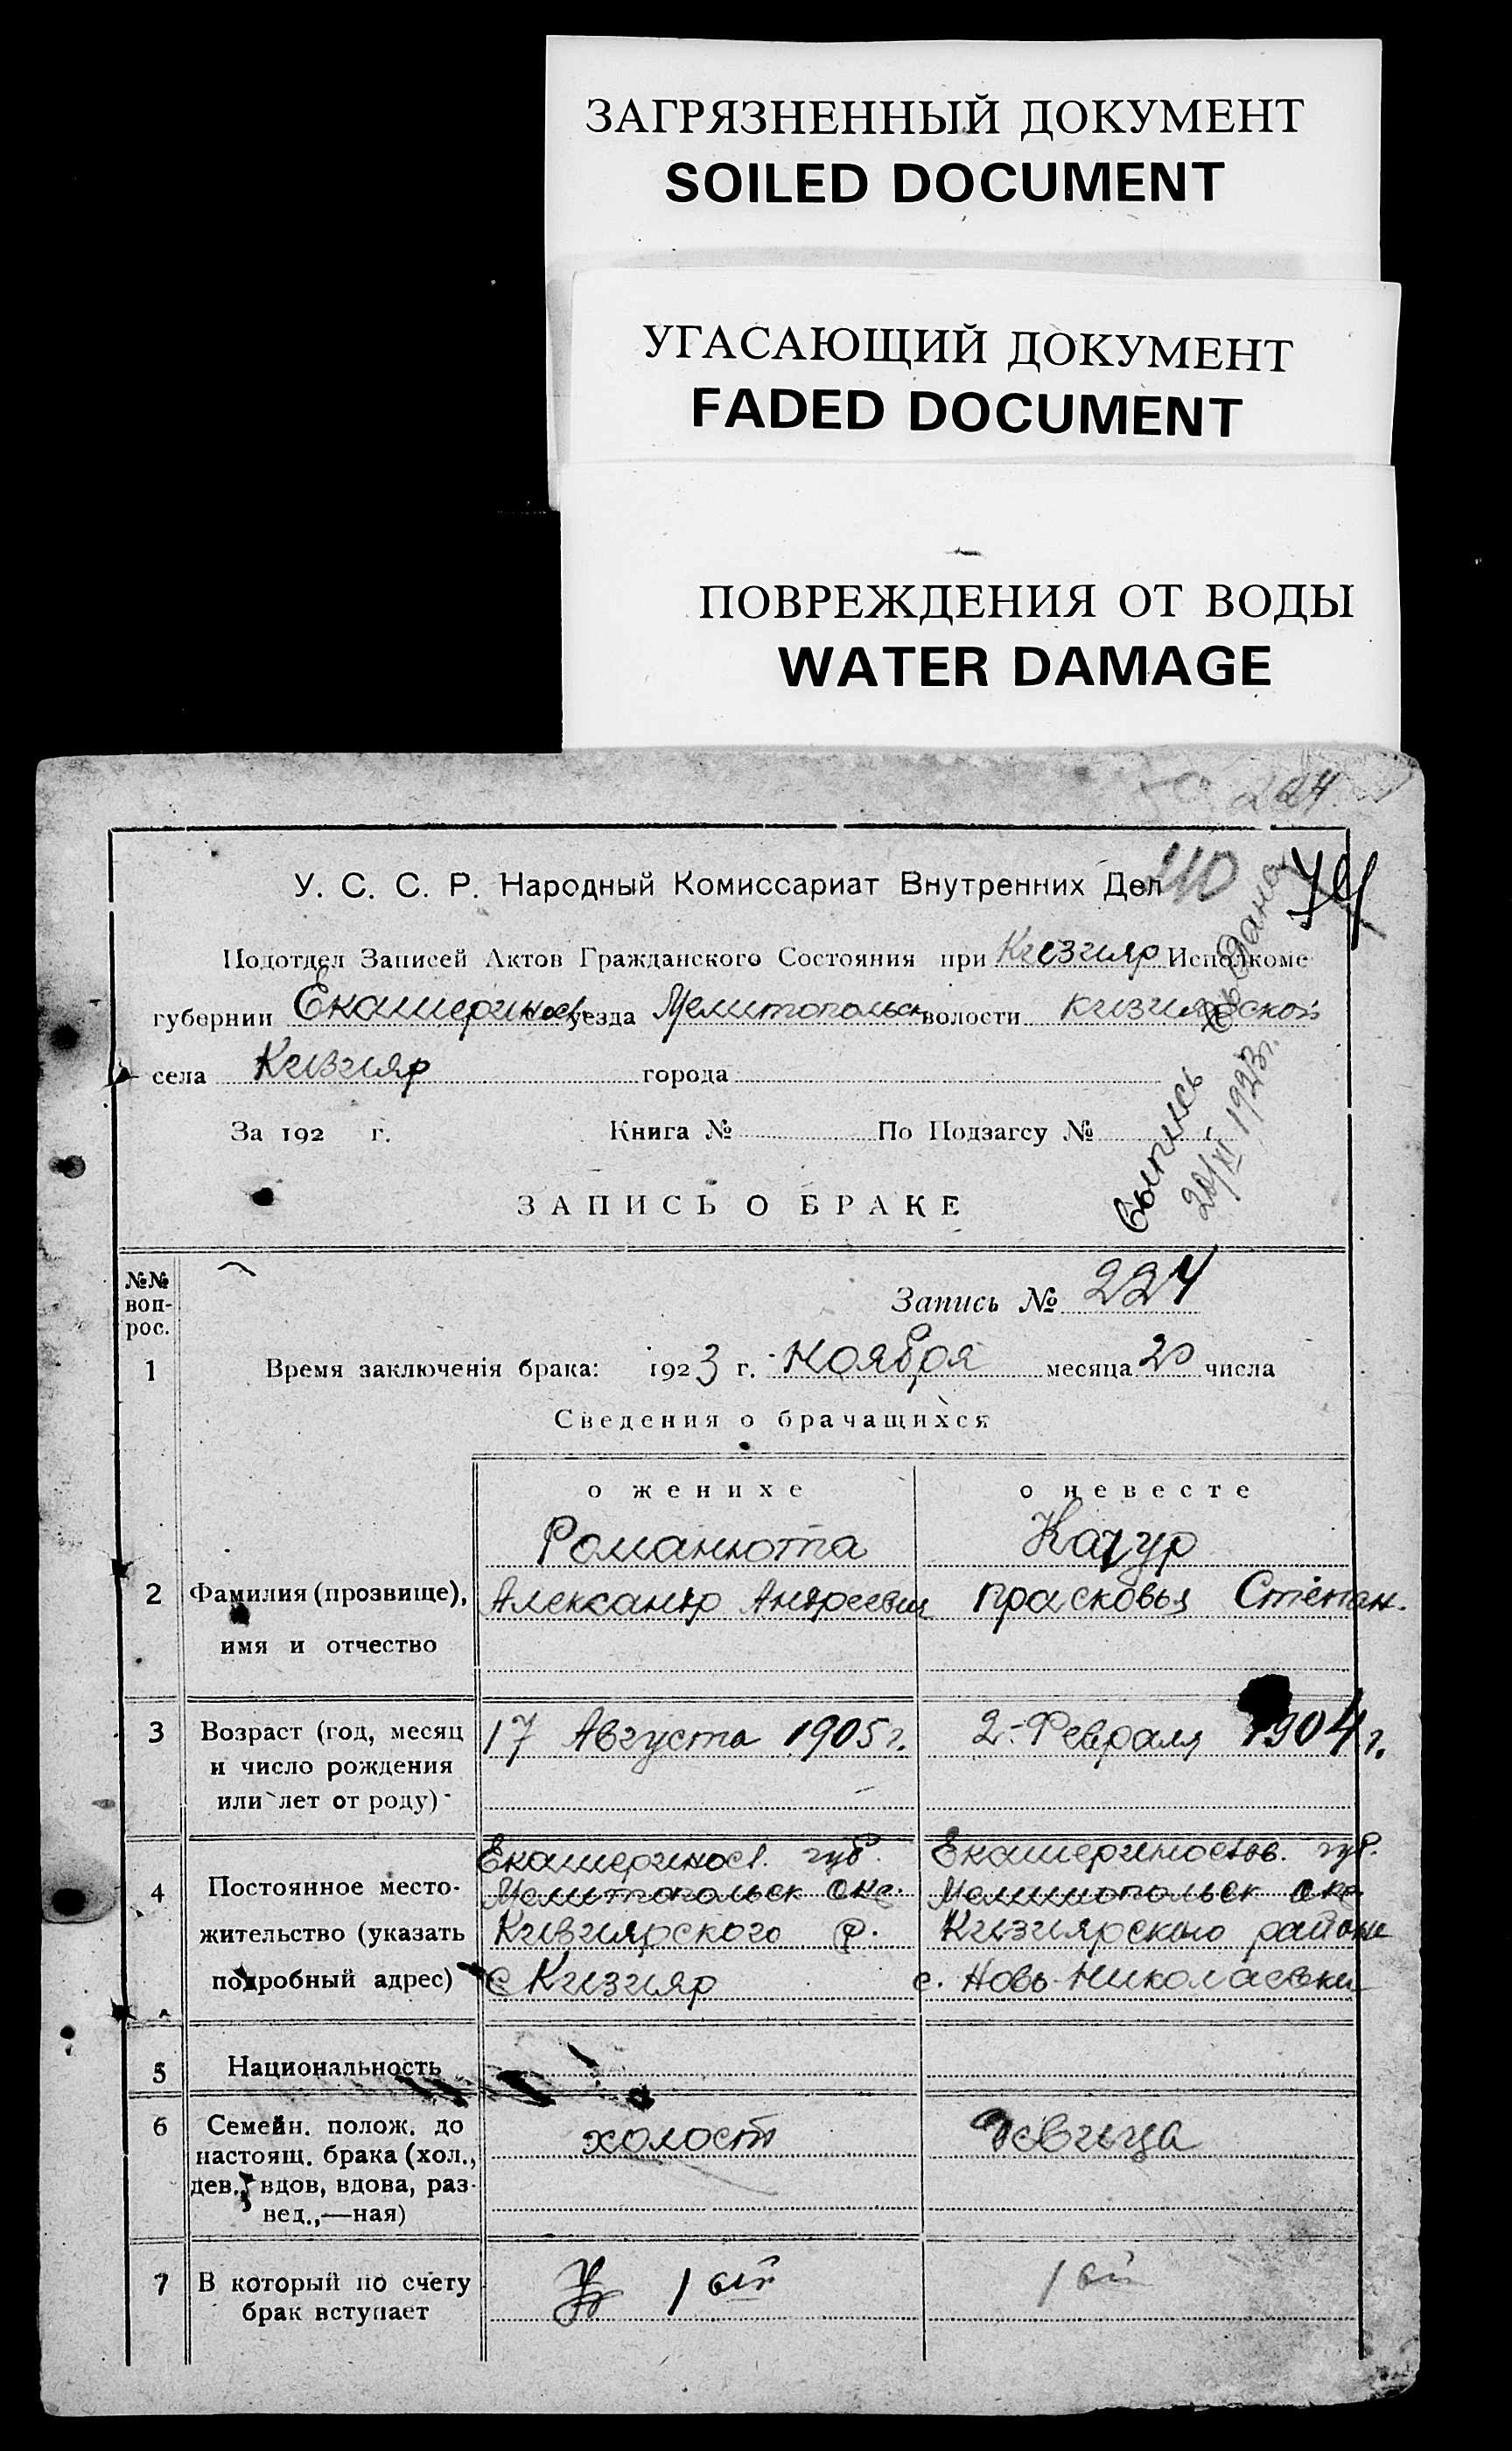 ЗАГРЯЗНЕННЫЙ ДОКУМЕНТ
SOILED DOCUMENT
УГАСАЮЩИЙ ДОКУМЕНТ
FADED DOCUMENT
ПОВРЕЖДЕНИЯ ОТ ВОДЫ
WATER DAMAGE
224
У. С. С. Р. Народный Комиссариат Внутренних Дел
Подотдел Записей Актов Гражданского Состояния при Кизияр Исполкоме
губернии Екатеринос. уезда Мелитопольск волости Кизиярской
села Кизияр города
За 192 г. Книга № По Подзагсу №
выпись выдана
20/XI 1923 г.
ЗАПИСЬ О БРАКЕ
№№ воп-рос.
Запись № 224
1 Время заключенія брака: 1923 г. Ноября месяца 20 числа
Сведения о брачащихся
о женихе о невесте
Романюта Качур
2 Фамилия (прозвище), Александр Андреевич Прасковья Степан.
имя и отчество
3 Возраст (год, месяц 17 Августа 1905 г. 2 Февраля 1904 г.
и число рождения
или лет от роду)
Екатеринос. губ. Екатеринослав. губ.
4 Постоянное место- Мелитопольск окр. Мелитопольск окр.
жительство (указать Кизиярского р. Кизиярского района
подробный адрес) с Кизияр с. Ново-Николаевка
5 Национальность
6 Семейн. полож. до холост девица
настоящ. брака (хол.,
дев., вдов, вдова, раз-
вед.,—ная)
7 В который по счету 1 ый 1 ый
брак вступает